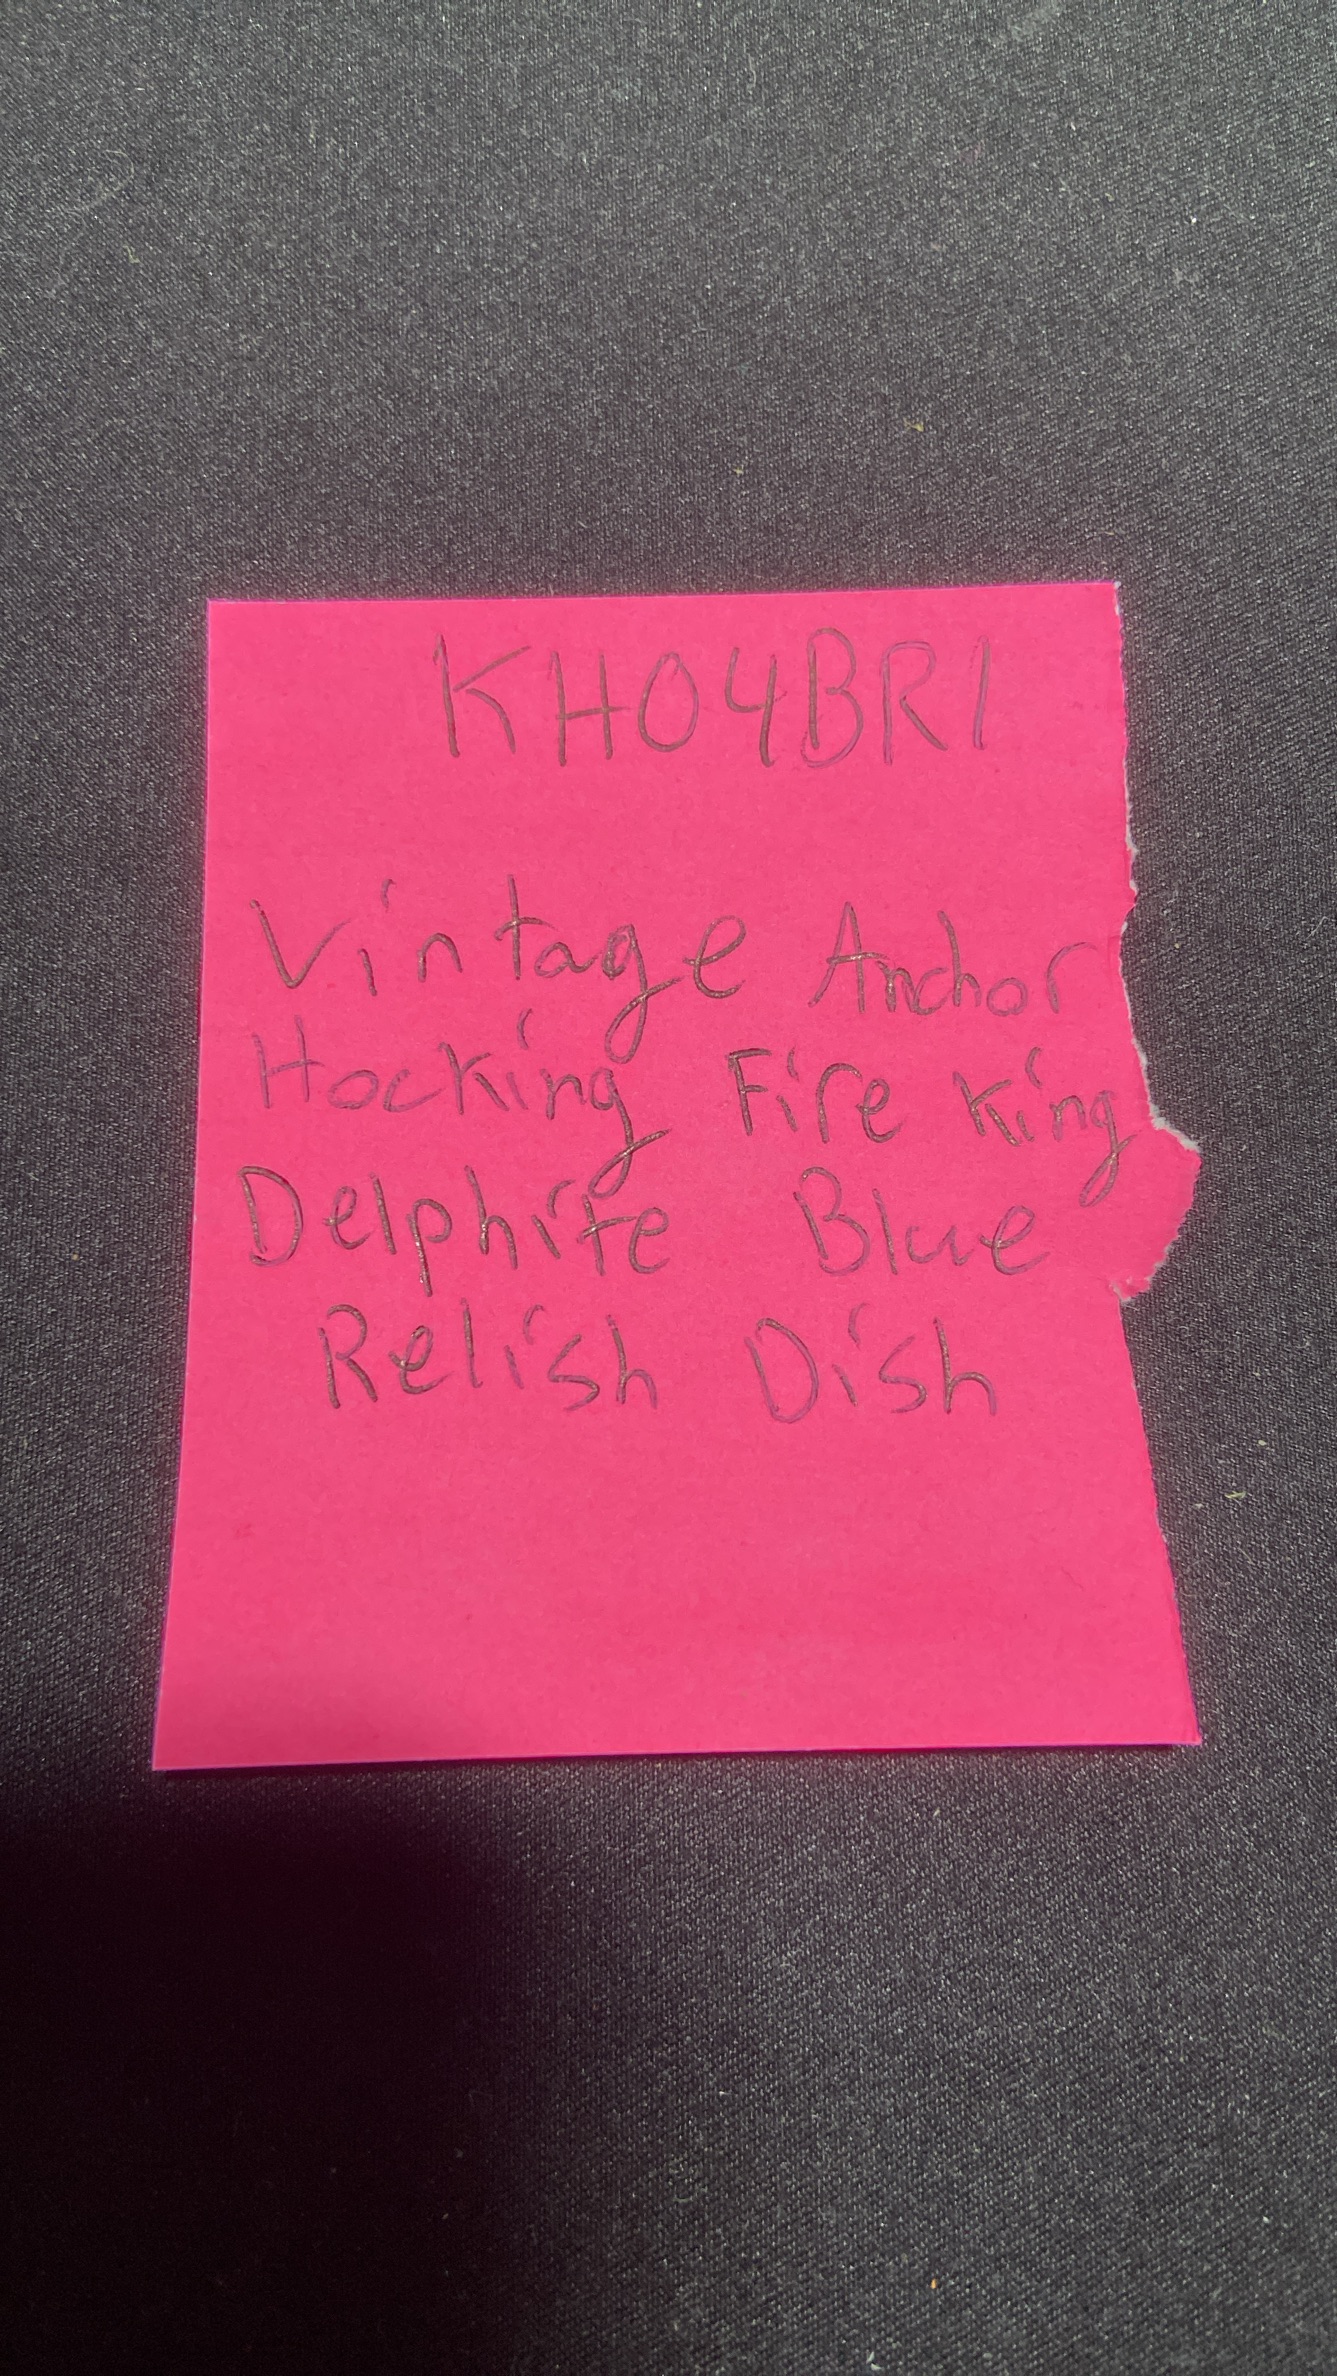 KH04BR1
Vintage Anchor
Hocking Fire King
Delphite Blue
Relish Dish